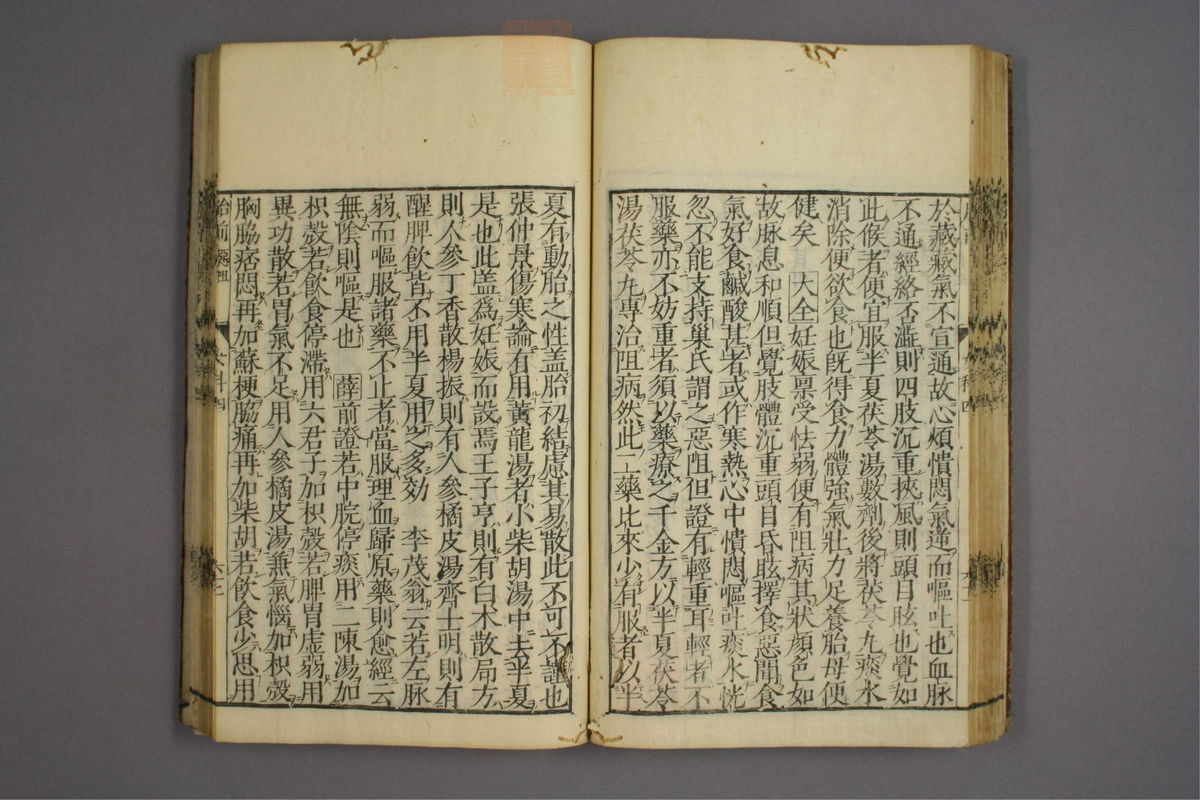 於藏藏氣不宣通故心煩憒悶氣逆而嘔吐也血脉
不通經絡否澁則四肢沉重挾風則頭目眩也覺如
此候者便宜服半夏茯苓湯數劑後將茯苓丸痰水
消除便欲食也旣得食力體強氣壯力足養胎母便
健矣 大全妊娠禀受怯弱便有阻病其狀顔色如
故脉息和順但覺肢體沉重頭目昏眩擇食惡聞食
氣好食鹹酸甚者或作寒熱心中憒悶嘔吐痰水恍
忽不能支持巢氏謂之惡阻但證有輕重耳輕者不
服藥亦不妨重者須以藥療之千金方以半夏茯苓
湯茯苓丸專治阻病然此二藥比來少有服者以半
夏有動胎之性盖胎初結慮其易散此不可不謹也
張仲景傷寒論有用黃龍湯者小柴胡湯中去半夏
是也此盖爲妊娠而設焉王子亨則有白术散局方
則人參丁香散楊振則有人參橘皮湯齊士明則有
醒脾飲皆不用半夏用之多効 李茂翁云若左脉
弱而嘔服諸藥不止者當服理血歸原藥則愈經云
無陰則嘔是也 薛前證若中脘停痰用二陳湯加
枳殼若飲食停滯用六君子加枳殼若脾胃虛弱用
異功散若胃氣不足用人參橘皮湯兼氣惱加枳殼
胸脇痞悶再加蘇梗脇痛再加柴胡若飲食少思用